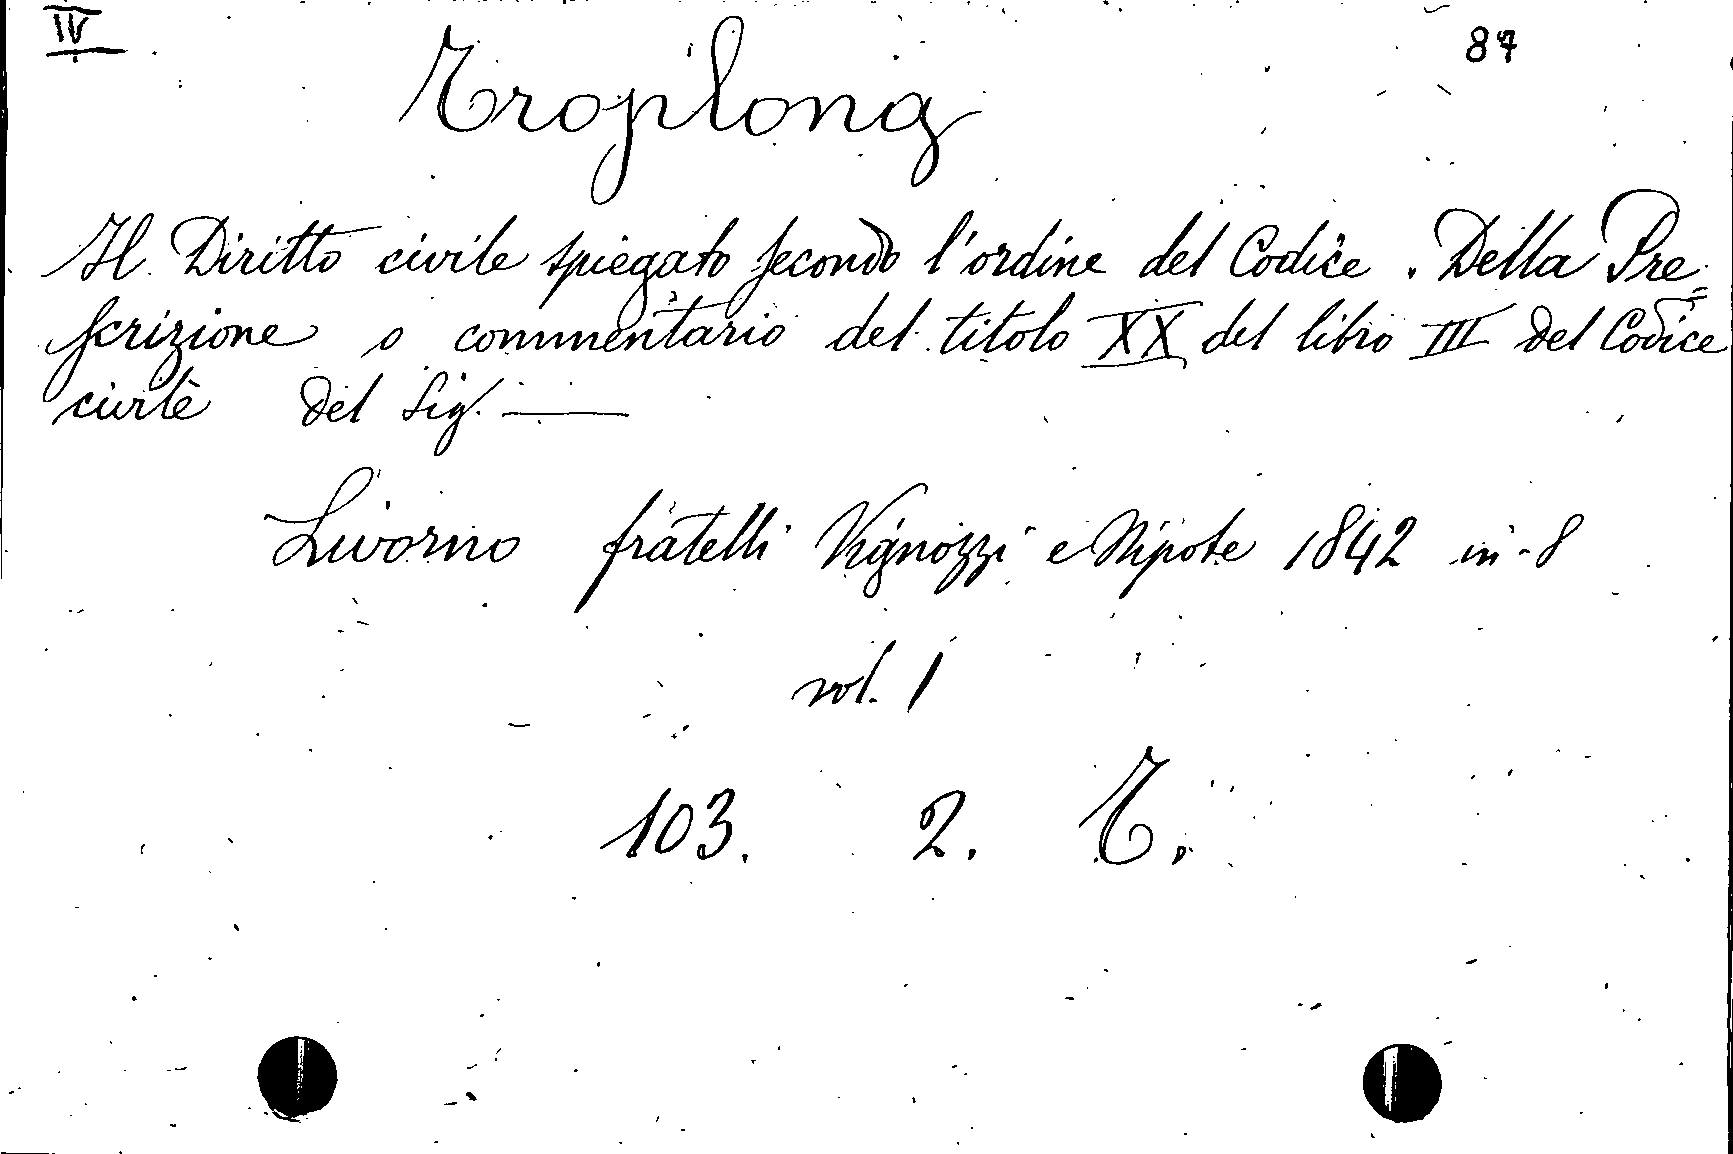 IV 87
Troplong
Il Diritto civile spiegato secondo l'ordine del Codice. Della Pre=
scrizione o commentario del titolo XX del libro III del Codice
civile del Sig. ———
Livorno fratelli Vignozzi e Nipote 1842 in-8
vol. 1
103. 2. T.